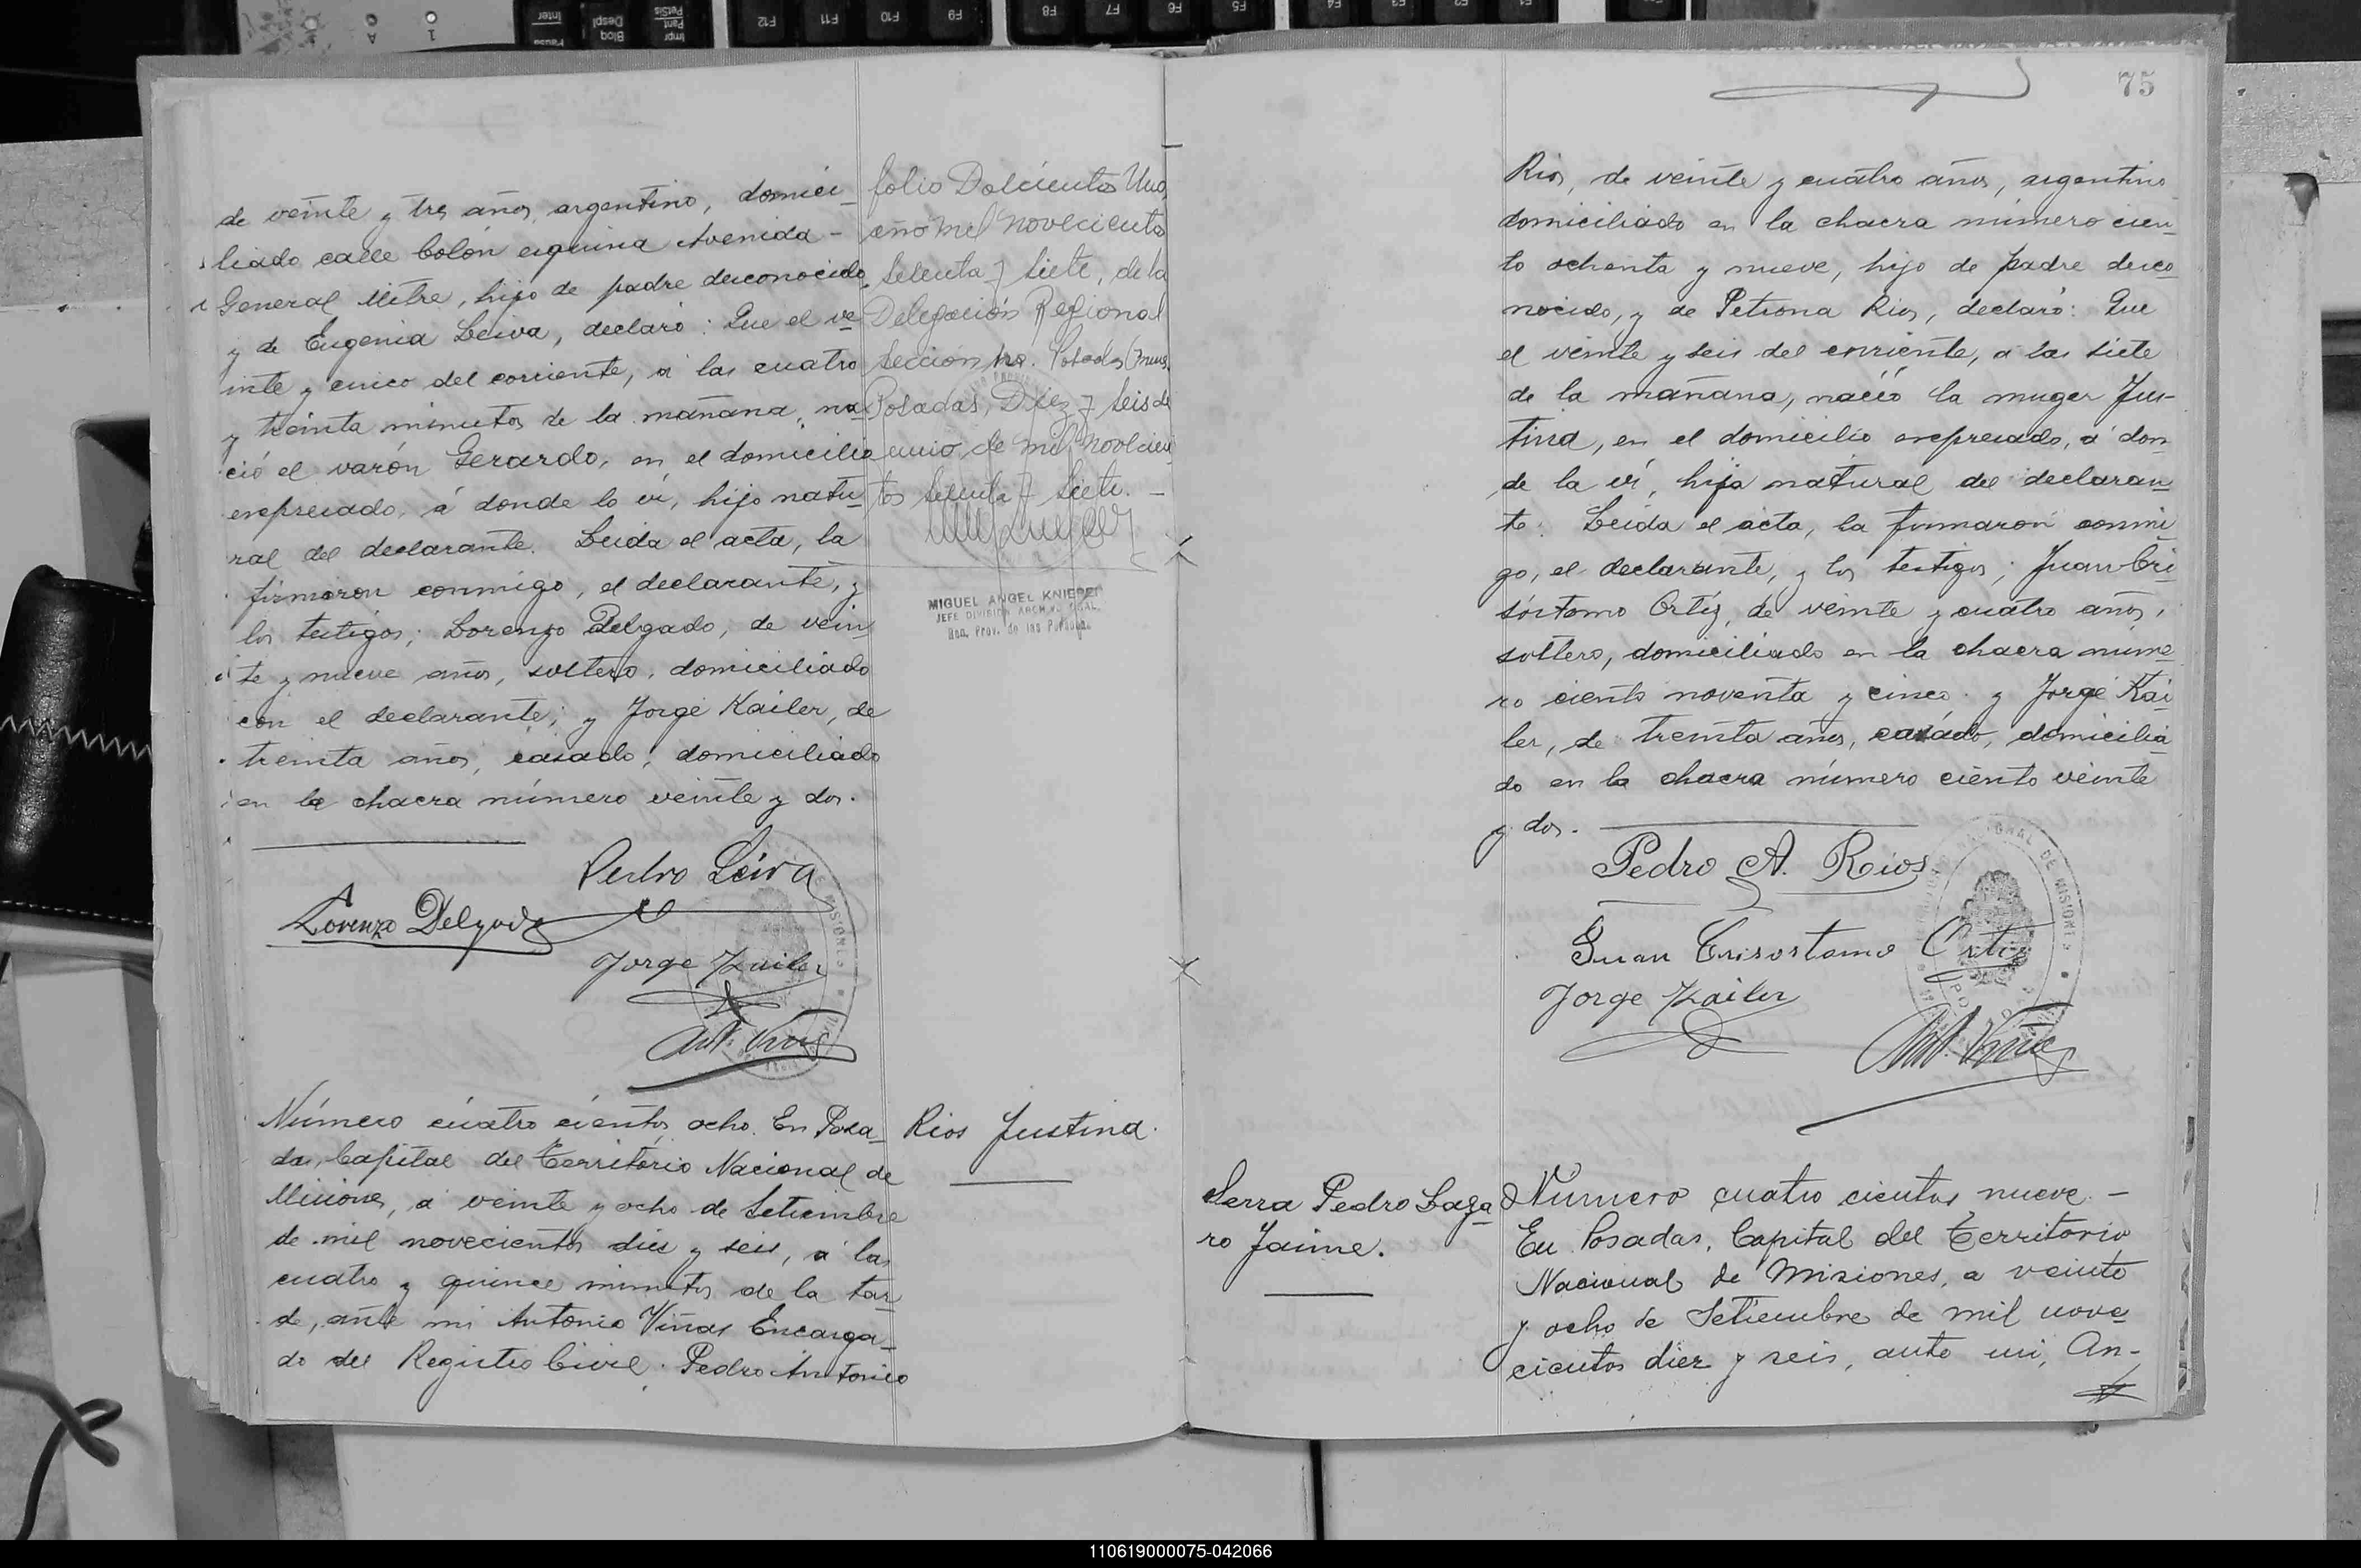 de veinte y tres años, argentino, domici-
liado calle Colón esquina Avenida -
General Mitre, hijo de padre desconocido,
y de Eugenia Leiva, declaró: Que el ve-
inte y cinco del corriente, á las cuatro
y treinta minutos de la mañana, na-
ció el varón Gerardo, en el domicilio
expresado, á donde lo ví, hijo natu-
ral del declarante. Leida el acta, la
firmaron conmigo, el declarante, y
los testigos; Lorenzo Delgado, de vein-
te y nueve años, soltero, domiciliado
con el declarante; y Jorge Kailer, de
treinta años, casado, domiciliado
en la chacra número veinte y dos.
Pedro Leiva
Lorenzo Delgado
Jorge Kailer
Ant. Viñas
folio Doscientos Uno,
año mil novecientos
setenta y siete, de la
Delegación Regional
sección 1ra. Posadas (mnes.
Posadas, Diez y seis de
junio de mil novecien
tos setenta y siete. -
MIGUEL ANGEL KNIEPER
JEFE DIVISION ARCH. Y GRAL.
Dcc. Prov. de las Personas
Número cuatro cientos ocho. En Posa-
das, Capital del Territorio Nacional de
Misiones, á veinte y ocho de Setiembre
de mil novecientos diez y seis, á las
cuatro y quince minutos de la tar-
de, ante mi Antonio Viñas Encarga-
do del Registro Civil. Pedro Antonio
Rios Justina.
75
Rios, de veinte y cuatro años, argentino
domiciliado en la chacra número cien-
to ochenta y nueve, hijo de padre desco-
nocido, y de Petrona Rios, declaró: Que
el veinte y seis del corriente, a las siete
de la mañana, nació la muger Jus-
tina, en el domicilio expresado, á don-
de la ví, hija natural del declaran-
te. Leida el acta, la firmaron conmi-
go, el declarante, y los testigos; Juan Cri-
sóstomo Ortiz, de veinte y cuatro años,
soltero, domiciliado en la chacra núme-
ro ciento noventa y cinco y Jorge Kai-
ler, de treinta años, casado, domicilia-
do en la chacra número ciento veinte
y dos.
Pedro A. Rios
Juan Crisostomo Ortiz
Jorge Kailer
Ant. Viñas
Serra Pedro Laza-
ro Jaime.
Número cuatro cientos nueve. -
En Posadas, Capital del Territorio
Nacional de Misiones, a veinte
y ocho de Setiembre de mil nove
cientos diez y seis, ante mi, An-
110619000075-042066